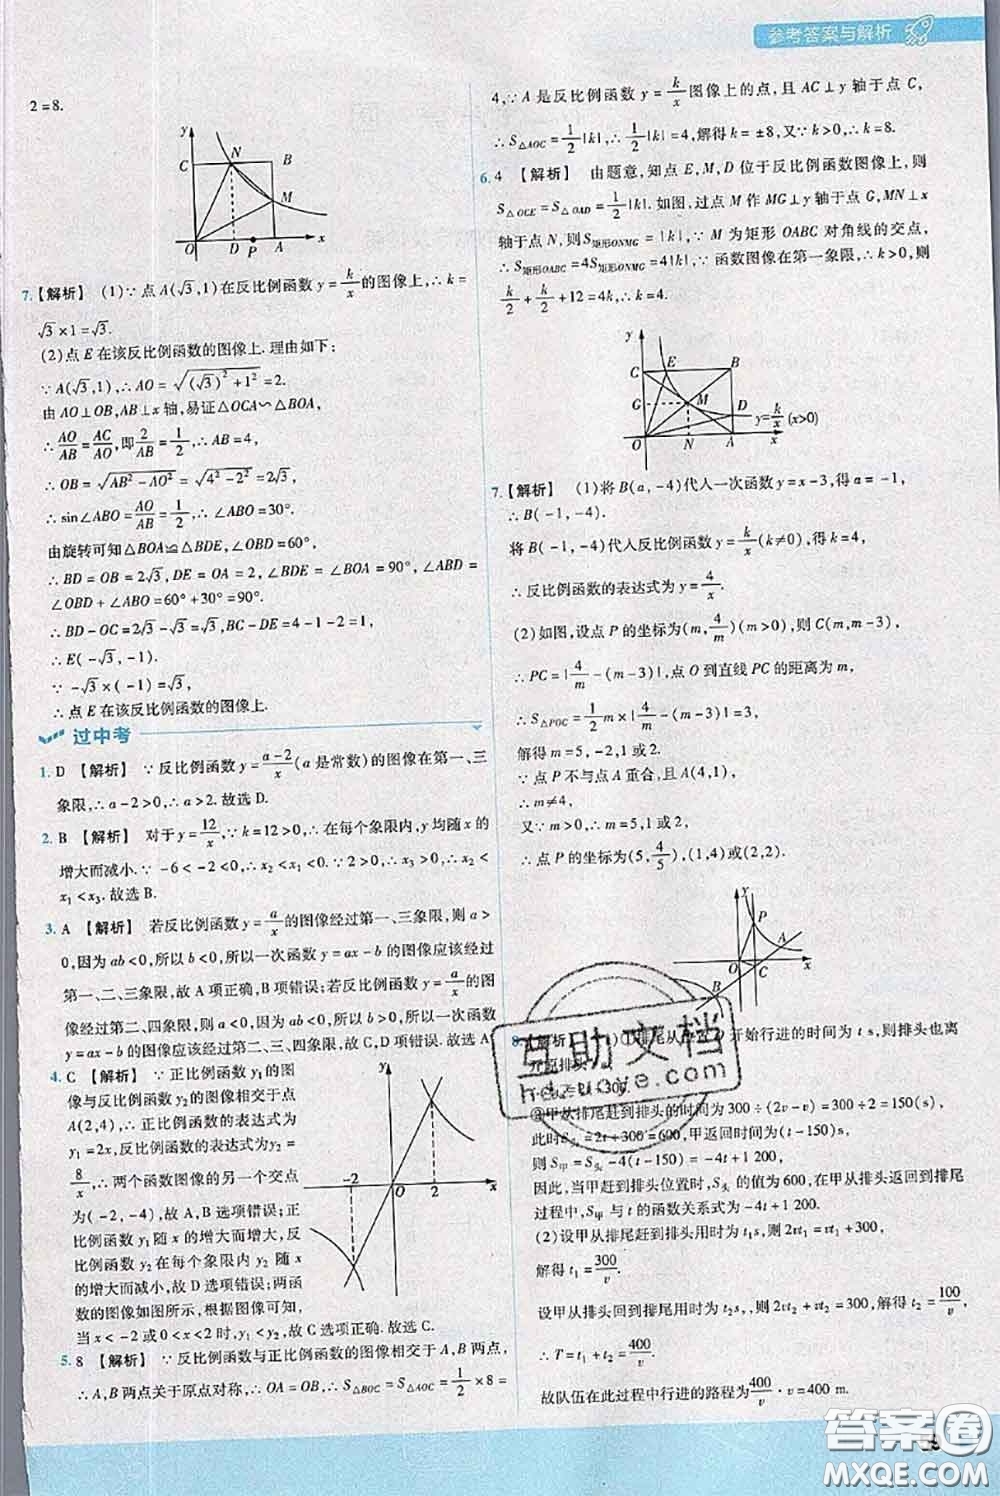 参考答案与解析
2=8.
y
C N B
M
O D P A x
7.【解析】 (1)∵点A(√3,1)在反比例函数y=k/x的图像上,∴k=
√3×1=√3.
(2)点E在该反比例函数的图像上.理由如下:
∵A(√3,1),∴AO=√((√3)²+1²)=2.
由AO⊥OB,AB⊥x轴,易证△OCA∽△BOA,
∴AO/AB=AC/AO,即2/AB=1/2,∴AB=4,
∴OB=√(AB²-AO²)=√(4²-2²)=2√3,
∴sin∠ABO=AO/AB=1/2,∴∠ABO=30°.
由旋转可知△BOA≌△BDE,∠OBD=60°,
∴BD=OB=2√3,DE=OA=2,∠BDE=∠BOA=90°,∠ABD=
∠OBD+∠ABO=60°+30°=90°.
∴BD-OC=2√3-√3=√3,BC-DE=4-1-2=1,
∴E(-√3,-1).
∵-√3×(-1)=√3,
∴点E在该反比例函数的图像上.
过中考
1. D 【解析】 ∵反比例函数y=(a-2)/x(a是常数)的图像在第一、三
象限,∴a-2>0,∴a>2.故选D.
2. B 【解析】 对于y=12/x,∵k=12>0,∴在每个象限内,y均随x的
增大而减小.∵-6<-2<0,∴x₂<x₁<0.∵2>0,∴x₃>0,∴x₂<
x₁<x₃.故选B.
3. A 【解析】 若反比例函数y=a/x的图像经过第一、三象限,则a>
0,因为ab<0,所以b<0,所以一次函数y=ax-b的图像应该经过
第一、二、三象限,故A项正确,B项错误;若反比例函数y=a/x的图
像经过第二、四象限,则a<0,因为ab<0,所以b>0,所以一次函数
y=ax-b的图像应该经过第二、三、四象限,故C,D项错误.故选A.
4. C 【解析】 ∵正比例函数y₁的图
像与反比例函数y₂的图像相交于点
A(2,4),∴正比例函数的表达式为
y₁=2x,反比例函数的表达式为y₂=
8/x,∴两个函数图像的另一个交点
为(-2,-4),故A,B选项错误;正
比例函数y₁随x的增大而增大,反
比例函数y₂在每个象限内y₂随x
的增大而减小,故D选项错误;两函
数的图像如图所示,根据图像可知,
当x<-2或0<x<2时,y₁<y₂,故C选项正确.故选C.
y
-2 O 2 x
5. 8 【解析】 ∵反比例函数与正比例函数的图像相交于A,B两点,
∴A,B两点关于原点对称,∴OA=OB,∴S△BOC=S△AOC=1/2×8=
4,∵A是反比例函数y=k/x图像上的点,且AC⊥y轴于点C,
∴S△AOC=1/2|k|,∴1/2|k|=4,解得k=±8,又∵k>0,∴k=8.
6. 4 【解析】 由题意,知点E,M,D位于反比例函数图像上,则
S△OCE=S△OAD=1/2|k|.如图,过点M作MG⊥y轴于点G,MN⊥x
轴于点N,则S矩形ONMG=|k|.∵M为矩形OABC对角线的交点,
∴S矩形OABC=4S矩形ONMG=4|k|,∵函数图像在第一象限,∴k>0,则
k/2+k/2+12=4k,∴k=4.
y
C E B
G M
D y=k/x(x>0)
O N A x
7.【解析】 (1)将B(a,-4)代入一次函数y=x-3,得a=-1,
∴B(-1,-4).
将B(-1,-4)代入反比例函数y=k/x(k≠0),得k=4,
∴反比例函数的表达式为y=4/x.
(2)如图,设点P的坐标为(m,4/m)(m>0),则C(m,m-3),
∴PC=|4/m-(m-3)|,点O到直线PC的距离为m,
∴S△POC=1/2m×|4/m-(m-3)|=3,
解得m=5,-2,1或2.
∵点P不与点A重合,且A(4,1),
∴m≠4,
又∵m>0,∴m=5,1或2,
∴点P的坐标为(5,4/5),(1,4)或(2,2).
y
P
A
O C x
B
8.【解析】 (1)①排尾从 开始行进的时间为t s,则排头也离
开原排头t s,
∴S头=2t+300.
②甲从排尾赶到排头的时间为300÷(2v-v)=300÷2=150(s),
此时S头=2t+300=600,甲返回时间为(t-150)s,
则S甲=S头-4(t-150)=-4t+1 200,
因此,当甲赶到排头位置时,S头的值为600,在甲从排头返回到排尾
过程中,S甲与t的函数关系式为-4t+1 200.
(2)设甲从排尾赶到排头用时为t₁s,则2vt₁=vt₁+300,
解得t₁=300/v.
设甲从排头回到排尾用时为t₂s,,则2vt₂+vt₂=300,解得t₂=100/v,
∴T=t₁+t₂=400/v.
故队伍在此过程中行进的路程为400/v·v=400 m.
互助文档
hdzuoye.com
答案圈
MXQE.COM